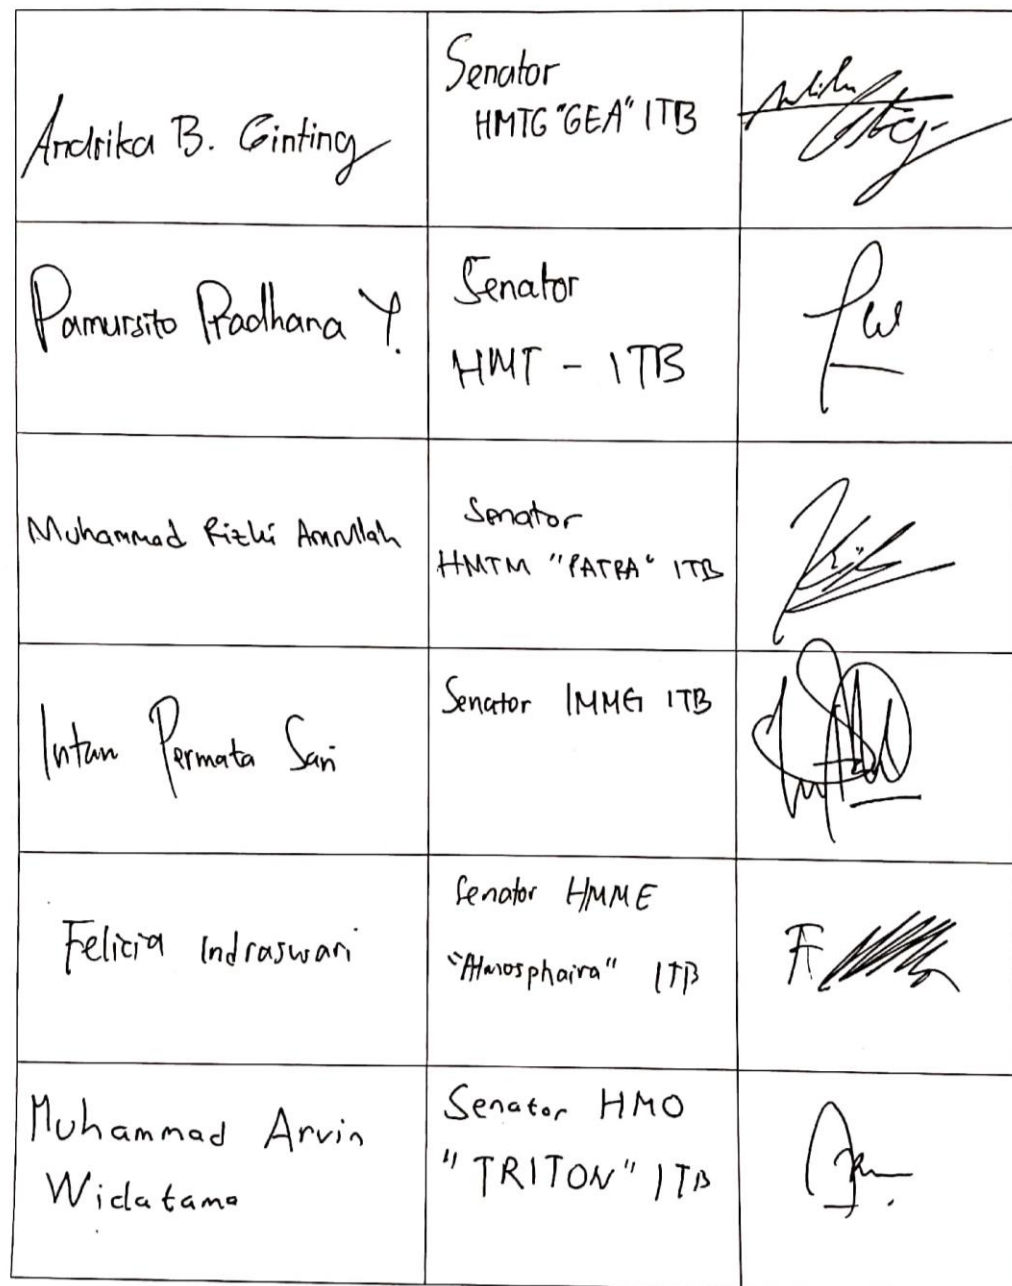 Andrika B. Ginting
Senator
HMTG "GEA" ITB
Pamursito Pradhana Y.
Senator
HMT - ITB
Muhammad Rizki Amrullah
Senator
HMTM "PATRA" ITB
Intan Permata Sari
Senator IMMG ITB
Felicia Indraswari
Senator HMME
"Atmosphaira" ITB
Muhammad Arvin
Widatama
Senator HMO
"TRITON" ITB